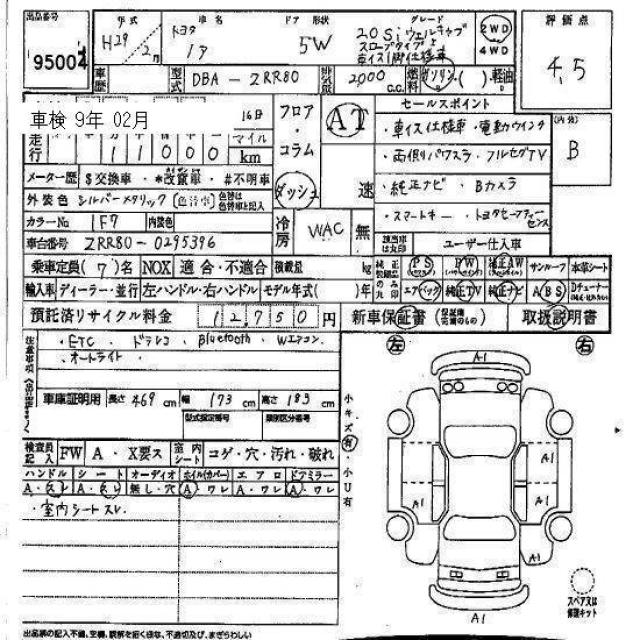 出品番号 95004
年式 H29/2月
車名 トヨタ ノア
ドア 形状 5W
グレード 2.0Si ウェルキャブ スロープタイプI 車イス1脚仕様車
2WD 4WD
評価点 4.5
車歴
型式 DBA-ZRR80
排気量 2,000 c.c.
燃料 ガソリン・( )軽油
車検 9年 02月 16日
フロア・コラム・ダッシュ
AT 速
セールスポイント
(内装) B
走行 11000 マイル km
・車イス仕様車 ・電動ウインチ
・両側パワスラ ・フルセグTV
メーター歴 $交換車・*改竄車・#不明車
・純正ナビ ・Bカメラ
外装色 シルバーメタリック (色替車) 色替は色替車と記入
・スマートキー ・トヨタセーフティーセンス
カラーNo 1F7 内装色
冷房 WAC 無
車台番号 ZRR80-0295396
該当車は丸印 ユーザー仕入車
乗車定員(7)名 NOX 適合・不適合 積載量 kg
純正装備品のみ丸印 PS PW 純正AW サンルーフ 本革シート
輸入車 ディーラー・並行 左ハンドル・右ハンドル モデル年式( )年
エアバック 純正TV 純正ナビ ABS Dチューナー
預託済リサイクル料金 12,750円 新車保証書 取扱説明書
注意事項(出品店)
・ETC ・ドラレコ ・Bluetooth ・Wエアコン
・オートライト
左 右
車庫証明用 長さ 469 cm 幅 173 cm 高さ 183 cm
型式指定番号 類別区分番号
小キズ有・小U有
検査員記入 FW A・X要ス 室内シート コゲ・穴・汚れ・破れ
ハンドル シート オーディオ ホイル(カバー) エアロ ドアミラー
A・スレ A・スレ 無し・穴 A・ワレ A・ワレ A・ワレ
・室内シートスレ
A1
A1
A1
A1
A1
スペアスは修理キット
出品票の記入不備、空欄、誤解を招く様な、不適切及び、まぎらわしい